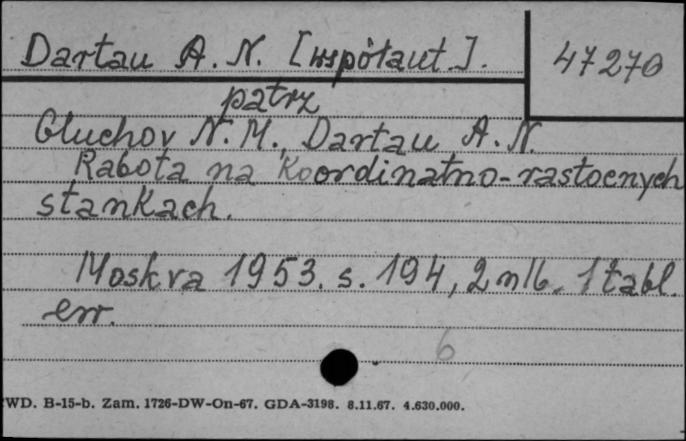 Dartau A. N. [współaut.].
47270
patrz
Gluchov N. M., Dartau A. N.
Rabota na koordinatno-rastocnych
stankach.
Moskva 1953. s. 194, 2 nlb. 1 tabl.
err.
6
WD. B-15-b. Zam. 1726-DW-On-67. GDA-3198. 8.11.67. 4.630.000.